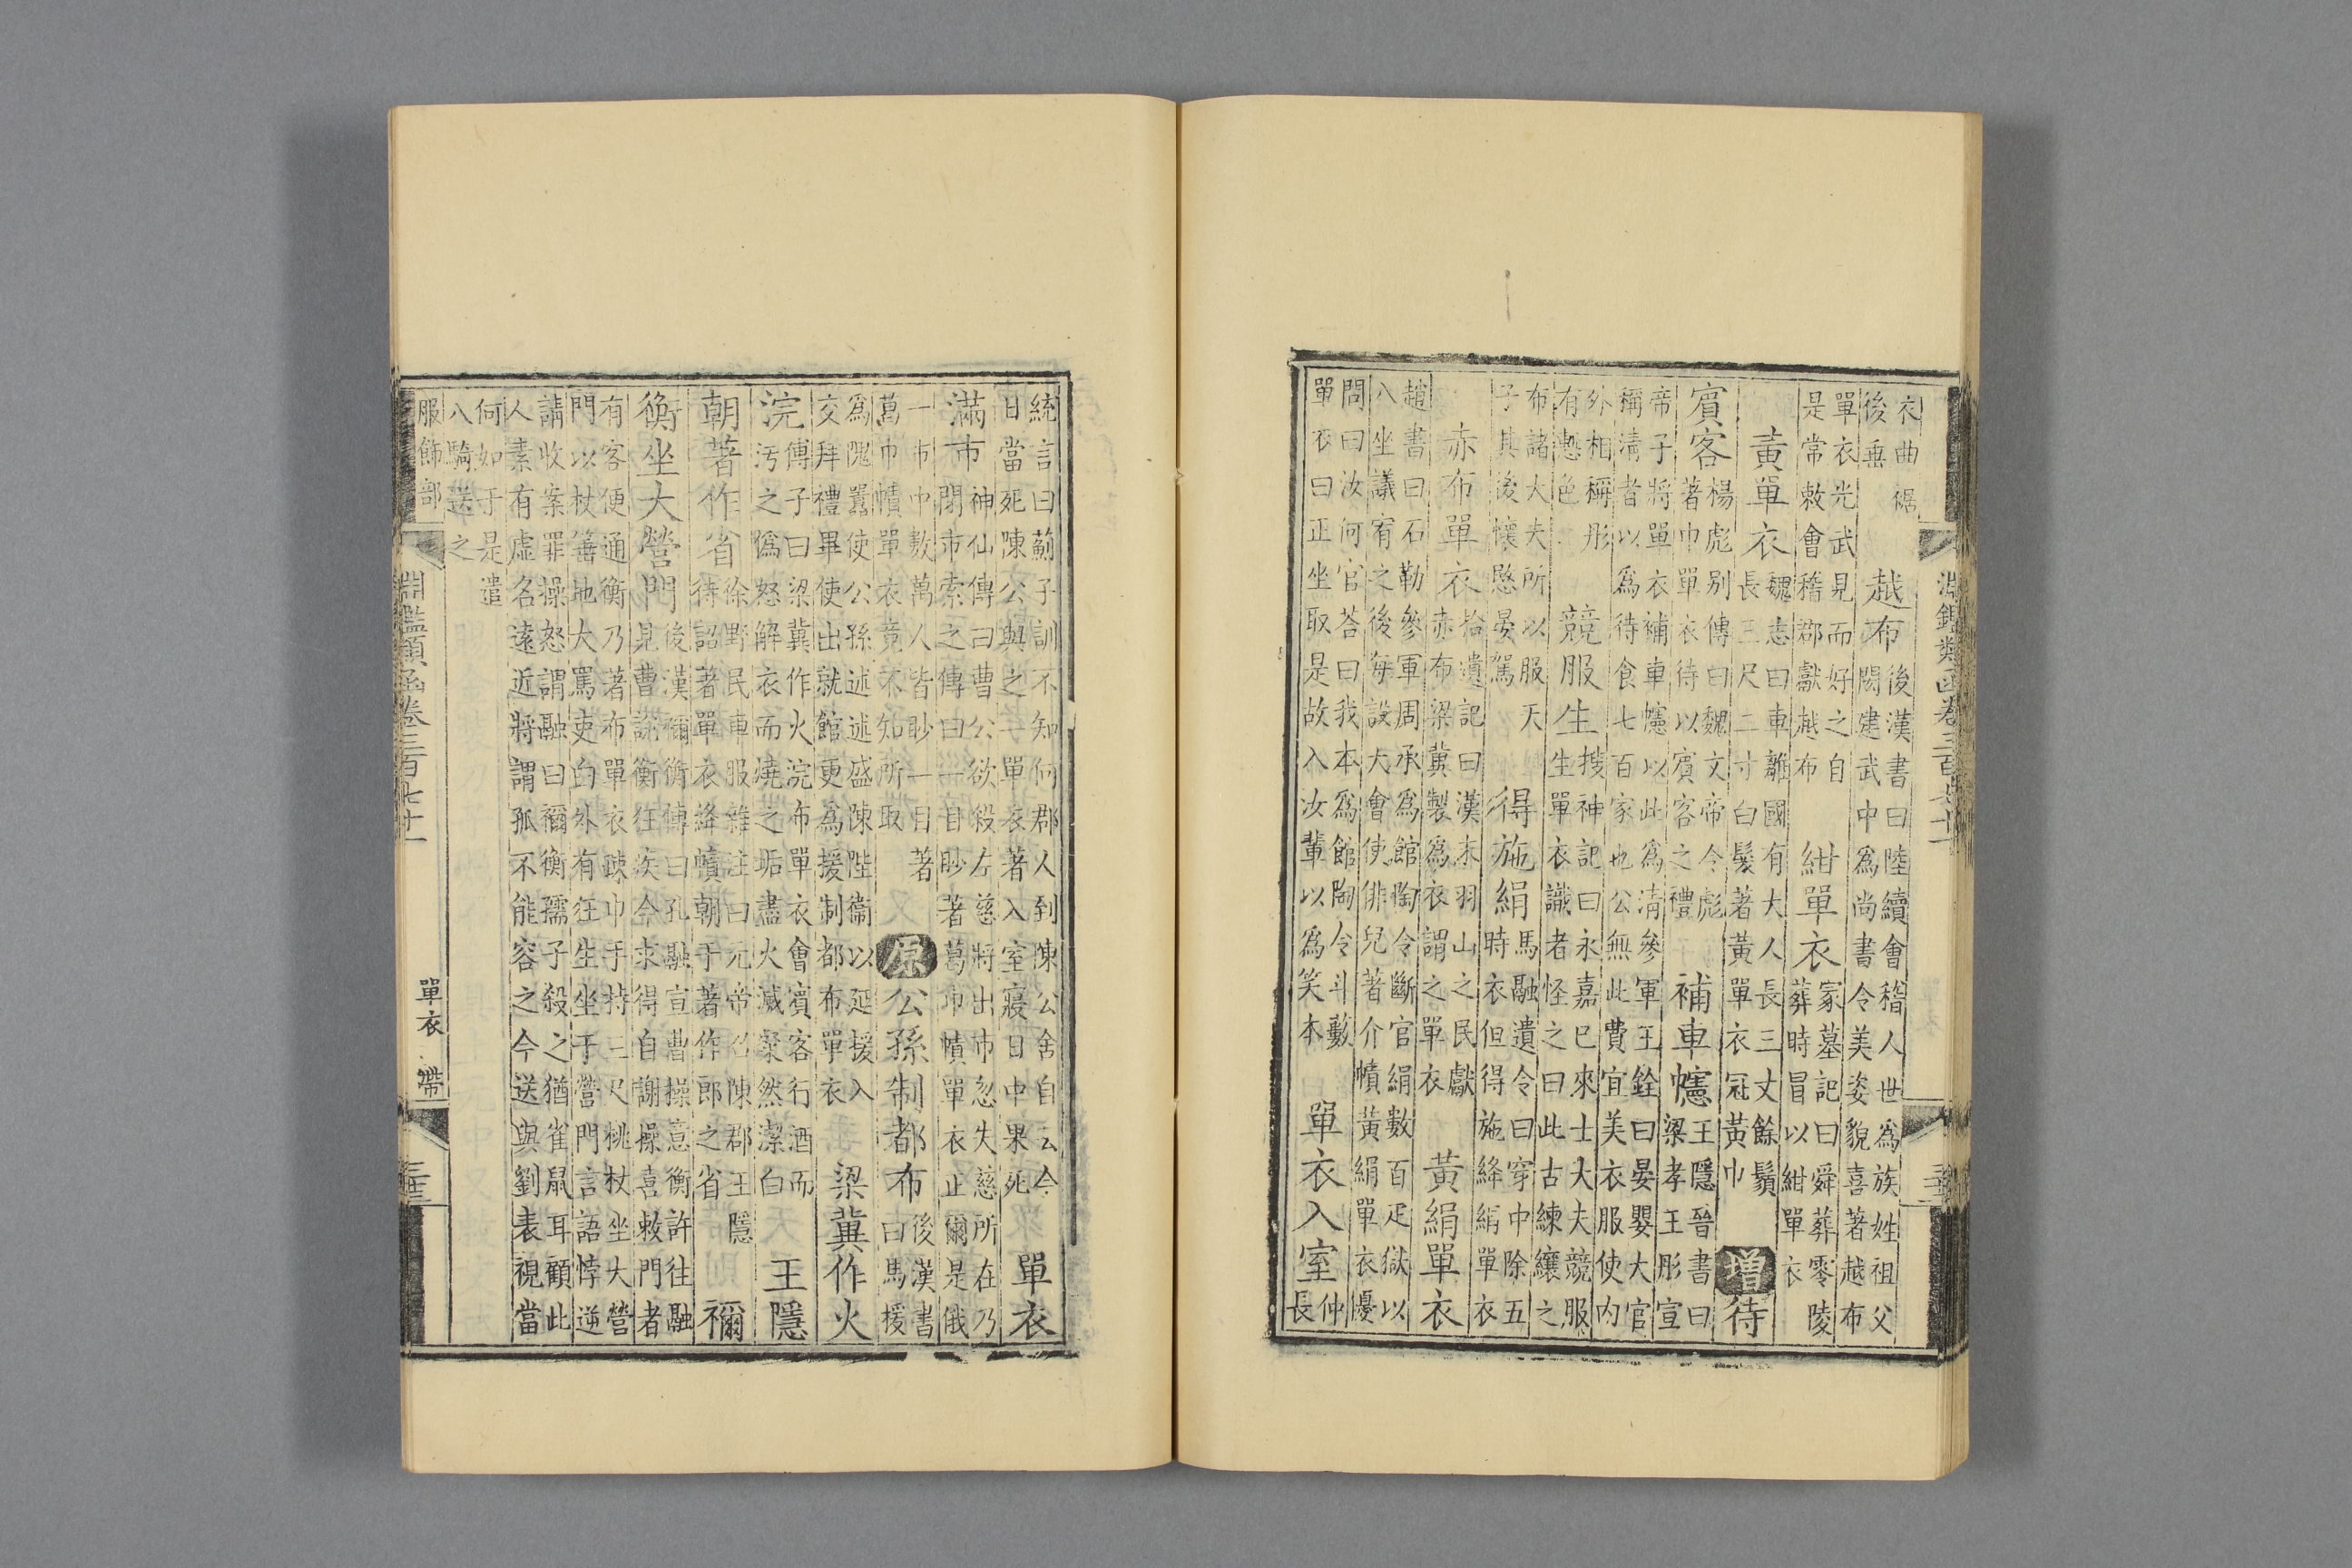 衣曲裾
後垂 越布 後漢書曰陸續會稽人世為族姓祖父
閎建武中為尚書令美姿貌喜著越布
單衣光武見而好之自
是常敕會稽郡獻越布 紺單衣 冢墓記曰舜葬零陵
葬時冒以紺單衣
黃單衣 魏志曰車離國有大人長三丈餘鬚
長三尺二寸白髮著黃單衣冠黃巾 增 待
賓客 楊彪別傳曰魏文帝令彪
著巾單衣待以賓客之禮 補車幰 王隱晉書曰
梁孝王彤宣
帝子將單衣補車幰以此為清參軍王銓曰晏嬰大官
稱清者以為待食七百家也公無此費宜美衣服使內
外相稱彤
有慙色 競服生 搜神記曰永嘉已來士大夫競服
生單衣識者怪之曰此古練纕之
布諸大夫所以服天
子其後懷愍晏駕 得施絹 馬融遺令曰穿中除五
時衣但得施絳絹單衣
赤布單衣 拾遺記曰漢末羽山之民獻
赤布梁冀製為衣謂之單衣 黃絹單衣
趙書曰石勒參軍周承為館陶令斷官絹數百疋獄以
八坐議宥之後每設大會使俳兒著介幘黃絹單衣優
問曰汝何官荅曰我本為館陶令斗藪
單衣曰正坐取是故入汝輩以為笑本 單衣入室 仲
長
統言曰薊子訓不知何郡人到陳公舍自云今
日當死陳公與之一單衣著入室寢日中果死 單衣
滿市 神仙傳曰曹公欲殺左慈慈將出市忽失慈所在乃
閉市索之傳曰一目眇著葛巾幘單衣止爾是俄
一市中數萬人皆眇一目著
葛巾幘單衣竟不知所取 原 公孫制都布 後漢書
曰馬援
為隗囂使公孫述述盛陳陛衞以延援入
交拜禮畢使出就館更為援制都布單衣 梁冀作火
浣 傅子曰梁冀作火浣布單衣會賓客行酒而
汚之偽怒解衣而燒之垢盡火滅粲然潔白 王隱
朝著作省 徐野民車服雜注曰元帝召陳郡王隱
待詔著單衣絳幘朝于著作郎之省 禰
衡坐大營門 後漢禰衡傳曰孔融宣曹操意衡許往融
見曹謝衡狂疾今求得自謝操喜敕門者
有客便通衡乃著布單衣疎巾手持三尺梲杖坐大營
門以杖箠地大罵吏白外有狂生坐于營門言語悖逆
請收案罪操怒謂融曰禰衡孺子殺之猶雀鼠耳顧此
人素有虛名遠近將謂孤不能容之今送與劉表視當
何如于是遣
八騎送之
服飾部 淵鑑類函卷三百七十一 單衣 帶
淵鑑類函卷三百七十一